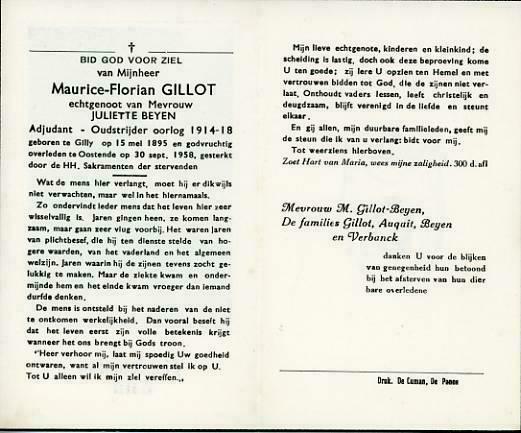 †
BID GOD VOOR ZIEL
van Mijnheer
Maurice-Florian GILLOT
echtgenoot van Mevrouw
JULIETTE BEYEN
Adjudant - Oudstrijder oorlog 1914-18
geboren te Gilly op 15 mei 1895 en godvruchtig
overleden te Oostende op 30 sept. 1958, gesterkt
door de HH. Sakramenten der stervenden
Wat de mens hier verlangt, moet hij er dikwijls
niet verwachten, maar wel in het hiernamaals.
Zo ondervindt ieder mens dat het leven hier zeer
wisselvallig is. Jaren gingen heen, ze komen lang-
zaam, maar gaan zeer vlug voorbij. Het waren jaren
van plichtbesef, die hij ten dienste stelde van ho-
gere waarden, van het vaderland en het algemeen
welzijn. Jaren waarin hij de zijnen tevens zocht ge-
lukkig te maken. Maar de ziekte kwam en onder-
mijnde hem en het einde kwam vroeger dan iemand
durfde denken.
De mens is ontsteld bij het naderen van de niet
te ontkomen werkelijkheid. Dan vooral beseft hij
dat het leven eerst zijn volle betekenis krijgt
wanneer het ons brengt bij Gods troon.
"Heer verhoor mij, laat mij spoedig Uw goedheid
ontwaren, want al mijn vertrouwen stel ik op U.
Tot U alleen wil ik mijn ziel vereffen.,,
Mijn lieve echtgenote, kinderen en kleinkind; de
scheiding is lastig, doch ook deze beproeving kome
U ten goede; zij lere U opzien ten Hemel en met
vertrouwen bidden tot God, die de zijnen niet verla-
at. Onthoudt vaders lessen, leeft christelijk en
deugdzaam, blijft verenigd in de liefde en steunt
elkaar.
En gij allen, mijn duurbare familieleden, geeft mij
de steun die ik van u verlang: bidt voor mij.
Tot weerziens hierboven.
Zoet Hart van Maria, wees mijne zaligheid. 300 d.afl
Mevrouw M. Gillot-Beyen,
De families Gillot, Auquit, Beyen
en Verbanck
danken U voor de blijken
van genegenheid hun betoond
bij het afsterven van hun dier
bare overledene
Druk. De Cuman, De Panne